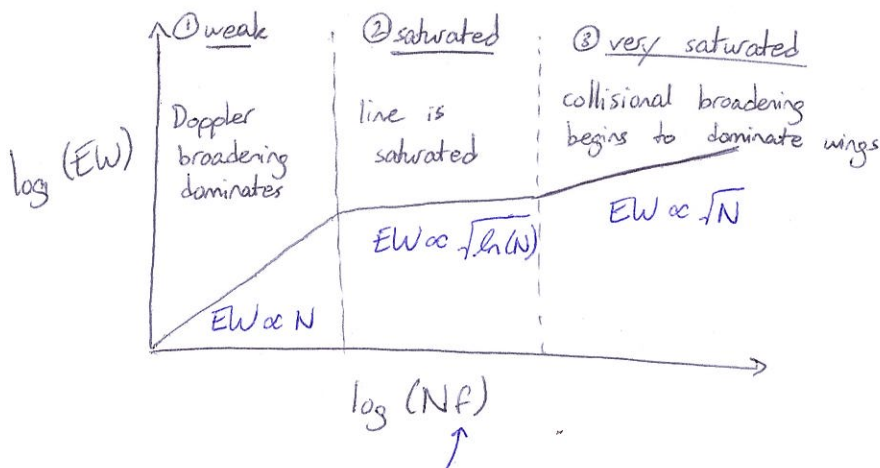 ① weak
② saturated
③ very saturated
Doppler
broadening
dominates
line is
saturated
collisional broadening
begins to dominate wings
log (EW)
EW ∝ N
EW ∝ √ln(N)
EW ∝ √N
log (Nf)